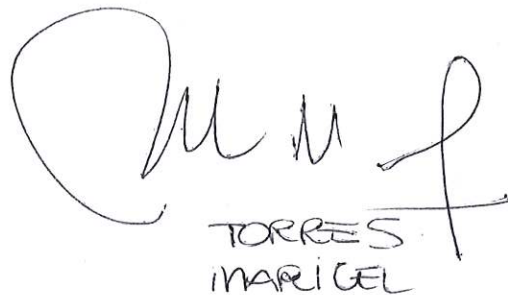 TORRES
MARICEL